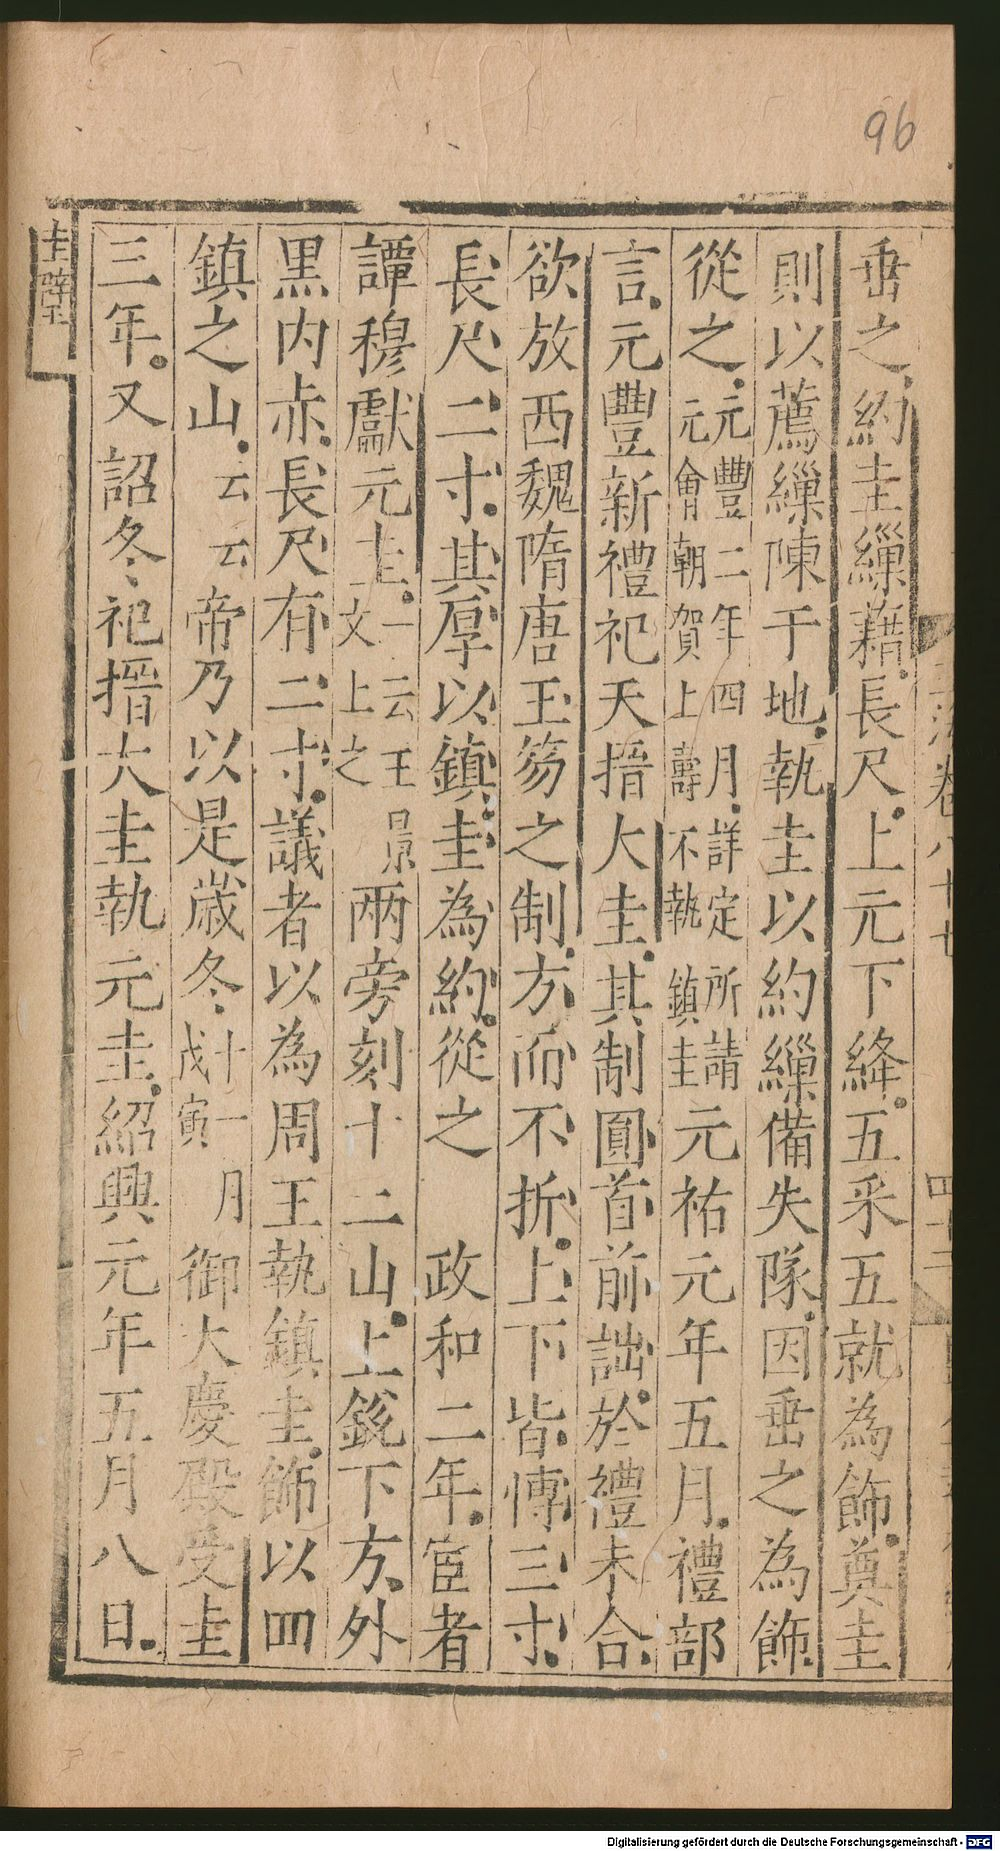 96
垂之約圭繅藉長尺上元下絳五采五就為飾奠圭
則以薦繅陳于地執圭以約繅備失隊因垂之為飾
從之元豐二年四月詳定所請元會朝賀上壽不執鎮圭元祐元年五月禮部
言元豐新禮祀天搢大圭其制圓首前詘於禮未合
欲放西魏隋唐玉笏之制方而不折上下皆博三寸
長尺二寸其厚以鎮圭為約從之 政和二年宦者
譚稹獻元圭一云王景文上之兩旁刻十二山上銳下方外
黑內赤長尺有二寸議者以為周王執鎮圭飾以四
鎮之山云云帝乃以是歲冬十一月戊寅御大慶殿受圭
三年又詔冬祀搢大圭執元圭紹興元年五月八日
圭璧
卷八十七
Digitalisierung gefördert durch die Deutsche Forschungsgemeinschaft - DFG